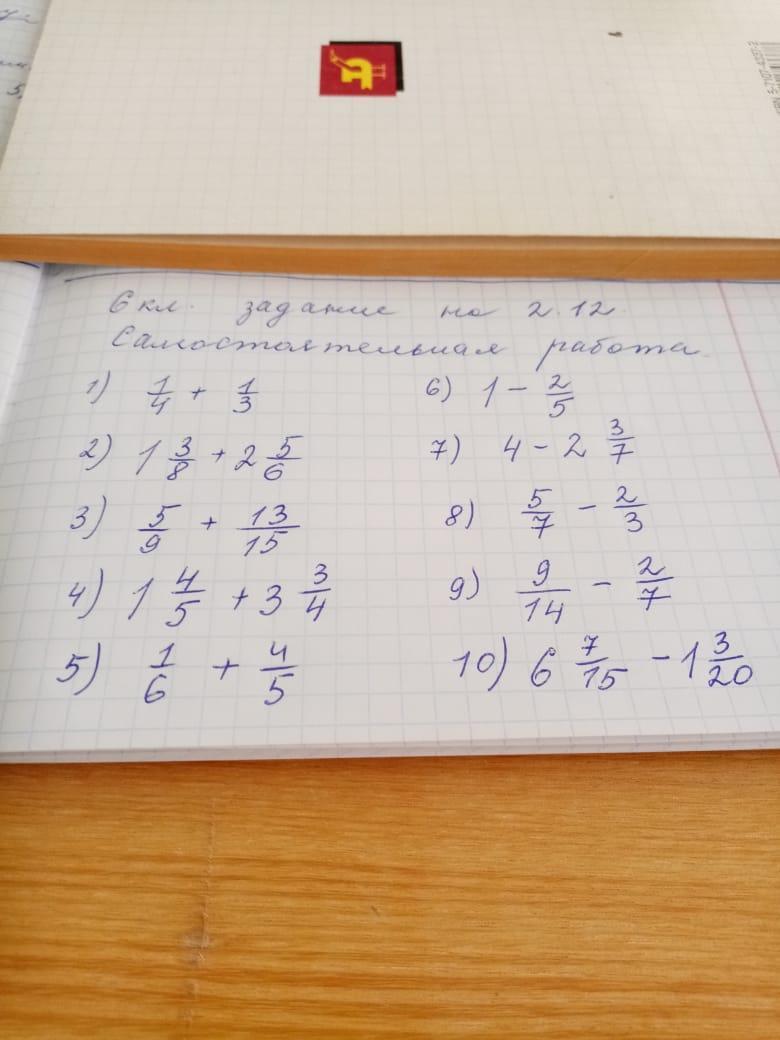 6 кл. задание на 2.12.
Самостоятельная работа.
1) 1/4 + 1/3
2) 1 3/8 + 2 5/6
3) 5/9 + 13/15
4) 1 4/5 + 3 3/4
5) 1/6 + 4/5
6) 1 - 2/5
7) 4 - 2 3/7
8) 5/7 - 2/3
9) 9/14 - 2/7
10) 6 7/15 - 1 3/20